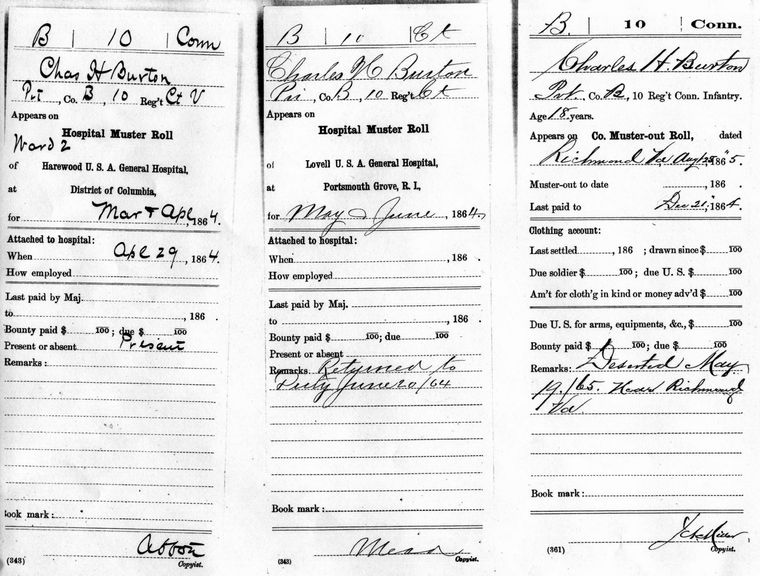 B | 10 | Conn
Chas H Burton
Pvt, Co. B, 10 Reg't Ct V
Appears on
Hospital Muster Roll
Ward 2
of Harewood U. S. A. General Hospital,
at District of Columbia,
for Mar & Apl, 1864.
Attached to hospital:
When Apl 29, 1864.
How employed
Last paid by Maj.
to , 186
Bounty paid $ 100; due $ 100
Present or absent Present
Remarks:
Book mark:
Abbott
(343) Copyist.
B | 10 | Ct
Charles H Burton
Pri, Co. B, 10 Reg't Ct
Appears on
Hospital Muster Roll
of Lovell U. S. A. General Hospital,
at Portsmouth Grove, R. I.,
for May & June, 1864.
Attached to hospital:
When , 186
How employed
Last paid by Maj.
to , 186
Bounty paid $ 100; due 100
Present or absent
Remarks: Returned to
Duty June 20/64
Book mark:
Mead
(343) Copyist.
B. | 10 | Conn.
Charles H. Burton
Pvt., Co. B, 10 Reg't Conn. Infantry.
Age 18 years.
Appears on Co. Muster-out Roll, dated
Richmond Va Aug 25 1865.
Muster-out to date , 186
Last paid to Dec 21, 1864.
Clothing account:
Last settled , 186 ; drawn since $ 100
Due soldier $ 100; due U. S. $ 100
Am't for cloth'g in kind or money adv'd $ 100
Due U. S. for arms, equipments, &c., $ 100
Bounty paid $ 100; due $ 100
Remarks: Deserted May
19/65. Near Richmond
Va
Book mark:
Miller
(361) Copyist.